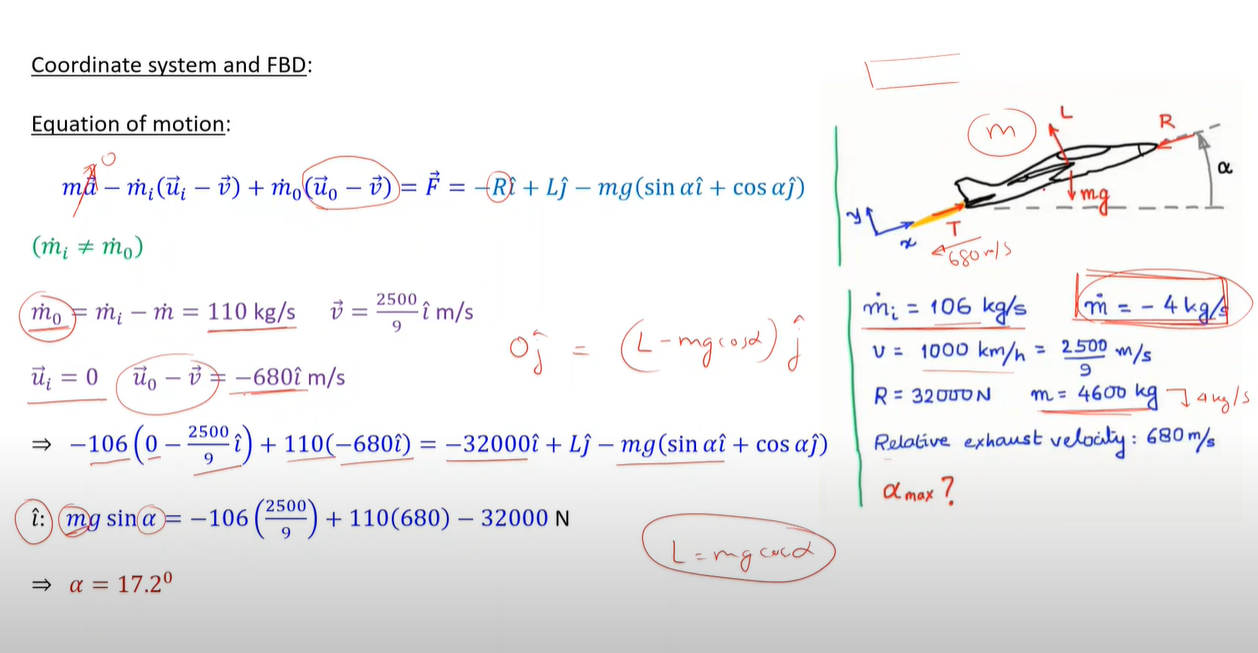 Coordinate system and FBD:
Equation of motion:
0
ma⃗ − ṁᵢ(u⃗ᵢ − v⃗) + ṁ₀(u⃗₀ − v⃗) = F⃗ = −Rî + Lĵ − mg(sin αî + cos αĵ)
(ṁᵢ ≠ ṁ₀)
ṁ₀ = ṁᵢ − ṁ = 110 kg/s v⃗ = 2500/9 î m/s
u⃗ᵢ = 0 u⃗₀ − v⃗ = −680î m/s
0ĵ = (L − mg cosα) ĵ
⇒ −106(0 − 2500/9 î) + 110(−680î) = −32000î + Lĵ − mg(sin αî + cos αĵ)
î: mg sin α = −106(2500/9) + 110(680) − 32000 N
L = mg cosα
⇒ α = 17.2⁰
m
L
R
α
mg
y
x
T
680 m/s
ṁᵢ = 106 kg/s ṁ = − 4 kg/s
v = 1000 km/h = 2500/9 m/s
R = 32000N m = 4600 kg 4 kg/s
Relative exhaust velocity: 680 m/s
α max ?